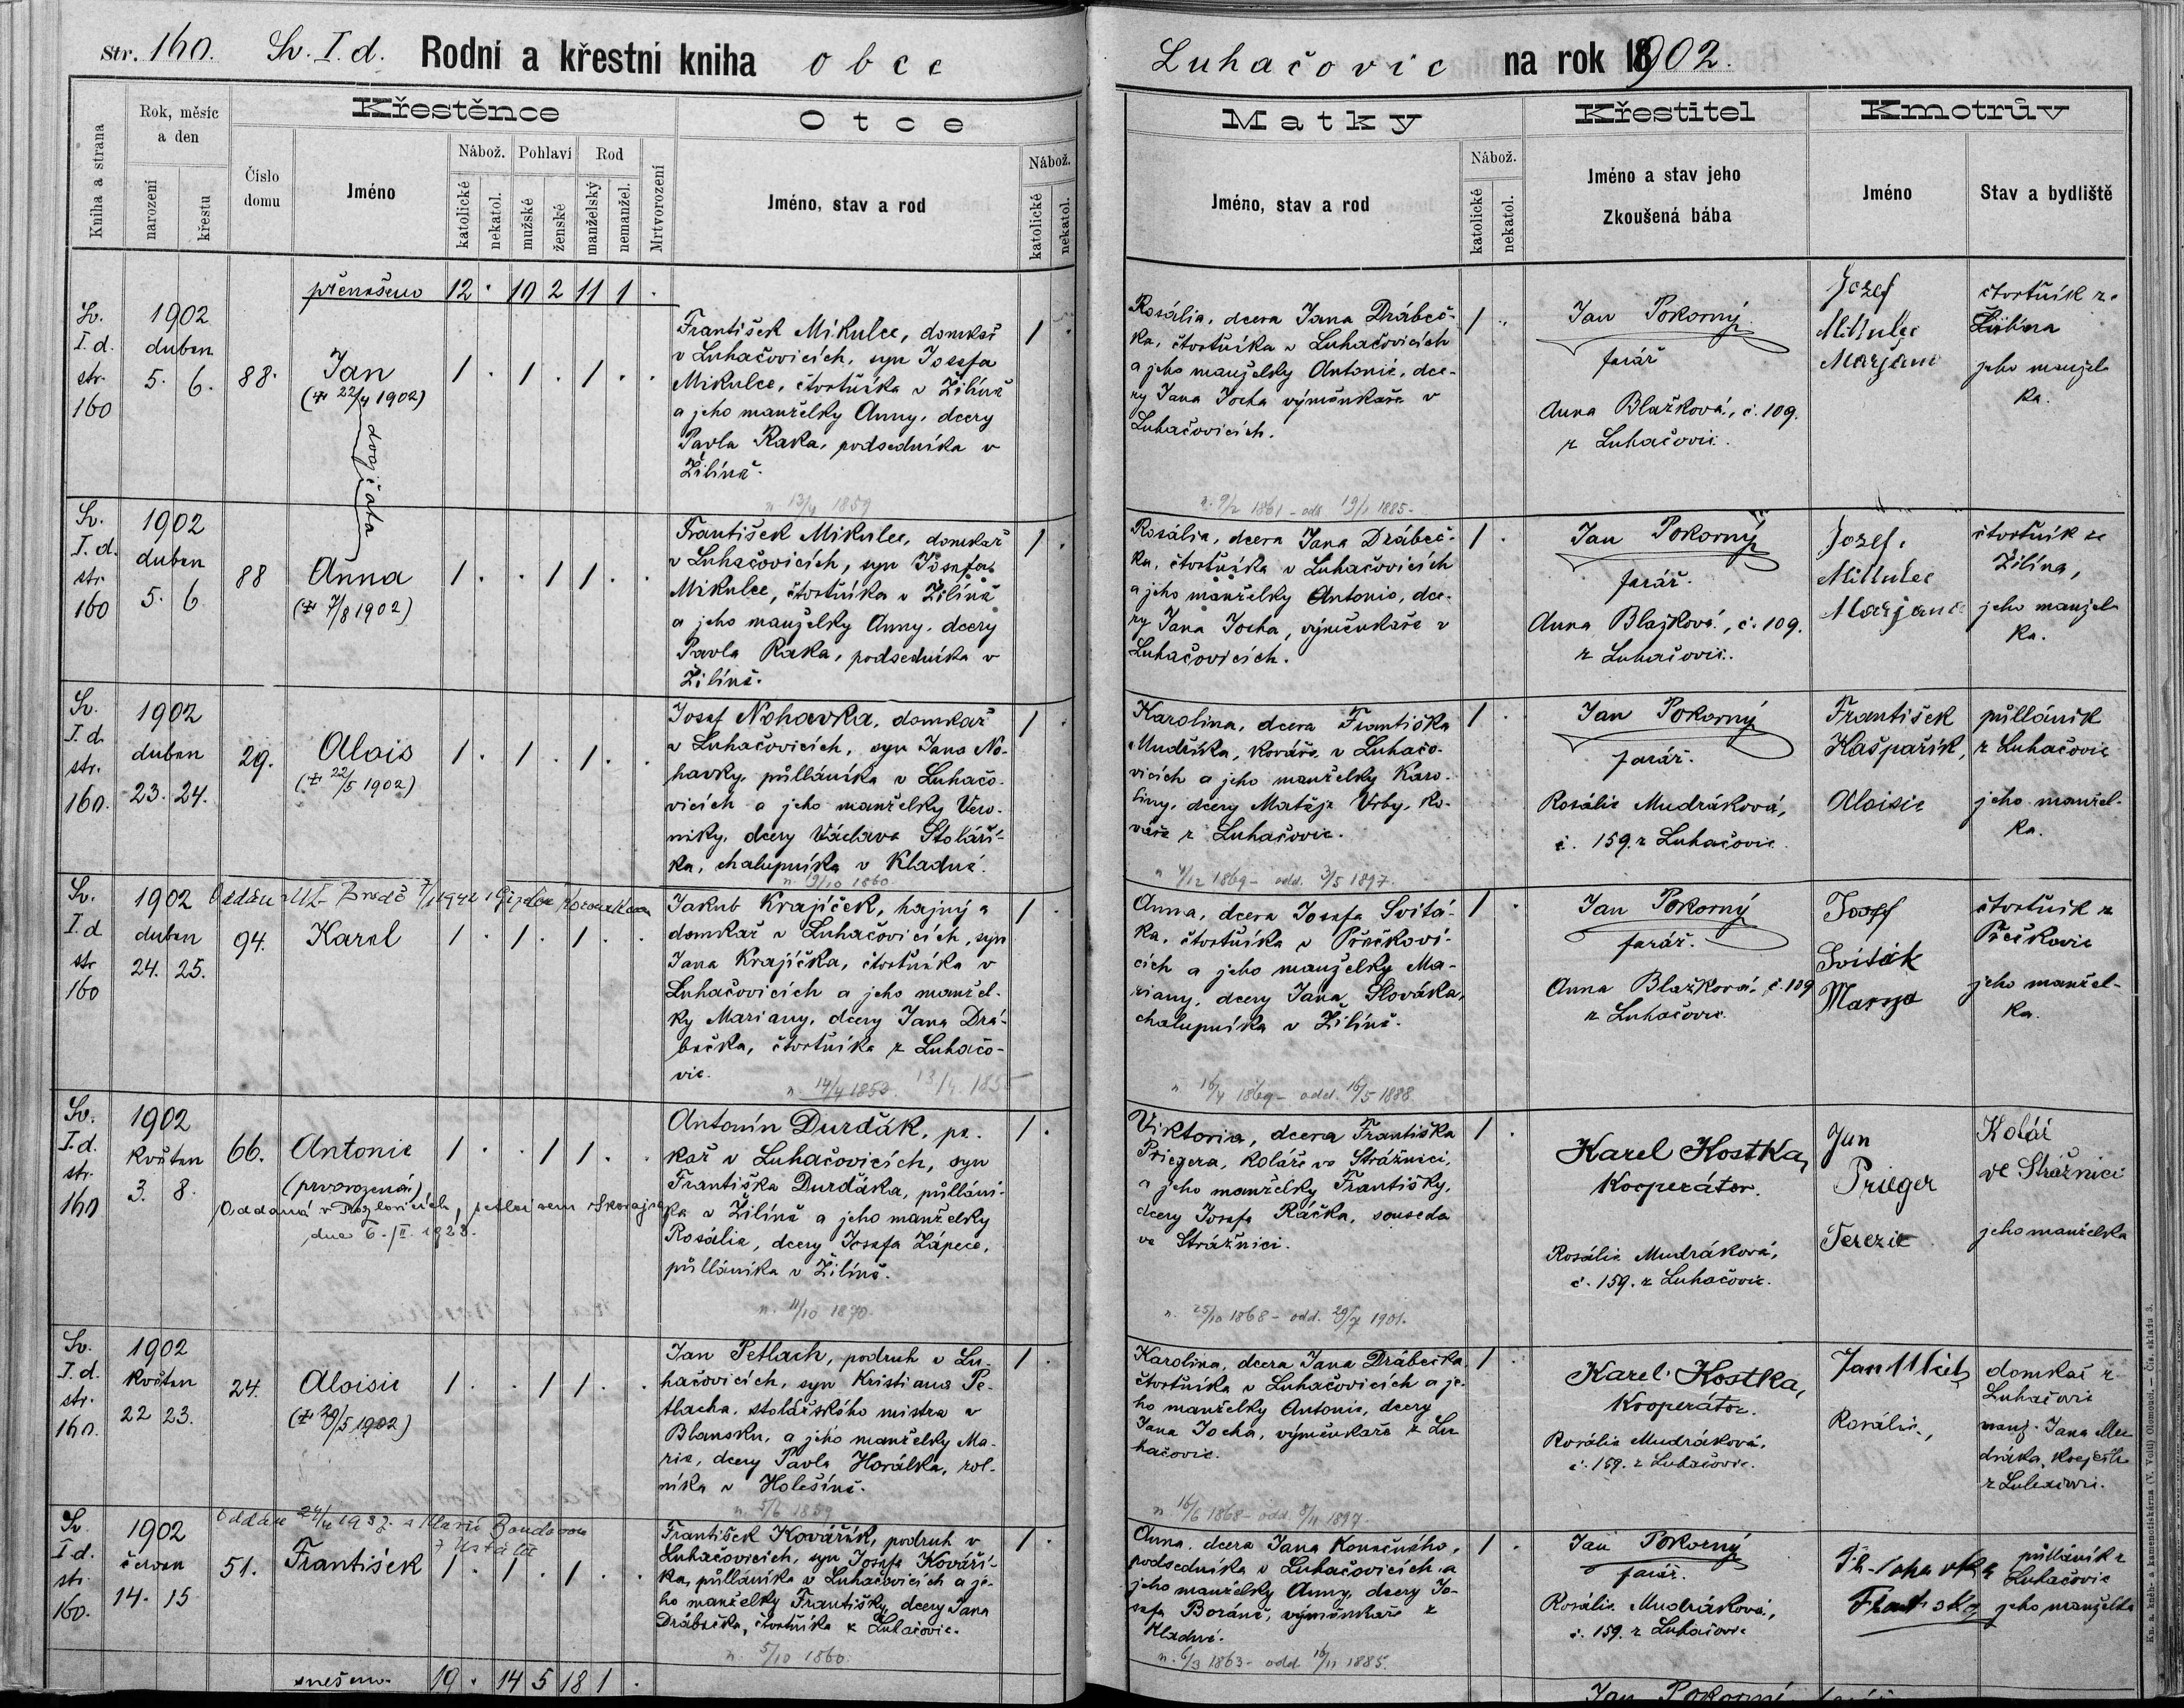 Str. 160. Sv. I. d. Rodní a křestní kniha obce
Luhačovic na rok 1902.
Kniha a strana
Rok, měsíc a den
narození
křestu
Číslo domu
Křestěnce
Jméno
Nábož.
katolické
nekatol.
Pohlaví
mužské
ženské
Rod
manželský
nemanžel.
Mrtvorození
Otce
Jméno, stav a rod
Nábož.
katolické
nekatol.
Matky
Jméno, stav a rod
Nábož.
katolické
nekatol.
Křestitel
Jméno a stav jeho
Zkoušená bába
Kmotrův
Jméno
Stav a bydliště
přenešeno 12 . 10 2 11 1 .
Sv.
I. d.
str.
160
1902
duben
5. 6.
88.
Jan
(† 22/4 1902)
dvojčata
1 . 1 . 1 . .
František Mikulec, domkař
v Luhačovicích, syn Josefa
Mikulce, čtvrtníka v Žilíně
a jeho manželky Anny, dcery
Pavla Raka, podsedníka v
Žilíně.
n 13/4 1859
1 .
Rosália, dcera Jana Drábeč-
ka, čtvrtníka v Luhačovicích
a jeho manželky Antonie, dce-
ry Jana Jocha výměnkáře v
Luhačovicích.
n. 9/2 1861 - odd. 19/1 1885.
1 .
Jan Pokorný
farář
Anna Blažková, č. 109.
z Luhačovic.
Jozef
Mikulec
Marjana
čtvrtník z
Žilína
jeho manžel
ka.
Sv.
I. d.
str
160
1902
duben
5. 6
88
Anna
(† 7/8 1902)
1 . . 1 1 . .
František Mikulec, domkař
v Luhačovicích, syn Josefa
Mikulce, čtvrtníka v Žilíně
a jeho manželky Anny, dcery
Pavla Raka, podsedníka v
Žilíně.
1 .
Rosália, dcera Jana Drábeč-
ka, čtvrtníka v Luhačovicích
a jeho manželky Antonie, dce-
ry Jana Jocha, výměnkáře v
Luhačovicích.
1 .
Jan Pokorný
farář.
Anna Blažková, č. 109.
z Luhačovic.
Jozef
Mikulec
Marjana
čtvrtník ze
Žilína,
jeho manžel
ka.
Sv.
I. d.
str.
160.
1902
duben
23. 24.
29.
Alois
(† 22/5 1902)
1 . 1 . 1 . .
Josef Nohavka, domkař
v Luhačovicích, syn Jana No-
havky, půlláníka v Luhačo-
vicích a jeho manželky Vero-
niky, dcery Václava Stolaří-
ka, chalupníka v Kladné.
n. 9/10 1860.
1 .
Karolina, dcera Františka
Mudříka, kováře v Luhačo-
vicích a jeho manželky Karo-
liny, dcery Matěje Vrby, ko-
váře z Luhačovic.
n 4/12 1869 - odd. 3/5 1897.
1 .
Jan Pokorný
farář.
Rosálie Mudráková,
č. 159. z Luhačovic.
František
Kašpařík,
Aloisie
půlláník
z Luhačovic
jeho manžel-
ka.
Sv.
I. d
str
160
1902
duben
24. 25.
94.
Karel
1 . 1 . 1 . .
Jakub Krajíček, hajný a
domkař v Luhačovicích, syn
Jana Krajíčka, čtvrtníka v
Luhačovicích a jeho manžel-
ky Mariany, dcery Jana Drá-
bečka, čtvrtníka z Luhačo-
vic.
1 .
Anna, dcera Josefa Svitá-
ka, čtvrtníka v Přečkovi-
cích a jeho manželky Ma-
riany, dcery Jana Slováka,
chalupníka v Žilíně.
n 16/4 1869 - odd. 16/5 1888.
1 .
Jan Pokorný
farář.
Anna Blažková, č. 109
z Luhačovic.
Josef
Sviták
Maryja
čtvrtník z
Přečkovic
jeho manžel-
ka.
Sv.
I. d.
str.
160
1902
květen
3. 8.
66.
Antonie
(prvorozená)
dne 6./II. 1923.
1 . . 1 1 . .
Antonín Durďák, pe-
kař v Luhačovicích, syn
Františka Durďáka, půllání-
ka v Žilíně a jeho manželky
Rosálie, dcery Josefa Zápece,
půlláníka v Žilíně.
n. 11/10 1870.
1 .
Viktoria, dcera Františka
Priegera, koláře ve Strážnici,
a jeho manželky Františky,
dcery Josefa Ráčka, souseda
ve Strážnici.
n. 25/10 1868 - odd. 29/7 1901.
1 .
Karel Kostka,
Kooperátor.
Rosálie Mudráková,
č. 159. z Luhačovic.
Jan
Prieger
Terezie
Kolář
ve Strážnici
jeho manželka
Sv.
I. d.
str.
160.
1902
květen
22 23.
24.
Aloisie
(† 29/5 1902)
1 . . 1 1 . .
Jan Petlach, podruh v Lu-
hačovicích, syn Kristiana Pe-
tlacha, stolářského mistra v
Blansku, a jeho manželky Ma-
rie, dcery Pavla Horálka, rol-
níka v Holešíně.
n. 5/6 1859
1 .
Karolina, dcera Jana Drábečka
čtvrtníka v Luhačovicích a je-
ho manželky Antonie, dcery
Jana Jocha, výměnkáře z Lu
hačovic.
n 16/6 1868 - odd. 8/11 1897.
1 .
Karel Kostka,
Kooperátor.
Rosálie Mudráková,
č. 159. z Luhačovic.
Jan
Rosálie,
domkař z
Luhačovic
manž. Jana Mu
dráka,
z Luhačovic.
Sv
I d.
str
160.
1902
červen
14. 15
51.
František
1 . 1 . 1 . .
František Kovářík, podruh v
Luhačovicích, syn Josefa Kováří-
ka, půlláníka v Luhačovicích a je-
ho manželky Františky, dcery Jana
Drábečka, čtvrtníka z Luhačovic.
n. 5/10 1860.
1 .
Anna, dcera Jana Konečného,
podsedníka v Luhačovicích a
jeho manželky Anny, dcery Jo-
sefa Boráně, výměnkáře z
Kladné.
n. 6/3 1863 - odd. 16/11 1885.
1 .
Jan Pokorný
farář.
Rosálie Mudráková,
č. 159. z Luhačovic
půlláník z
Luhačovic
jeho manželka
snešeno 19 . 14 5 18 1 .
Jan Pokorný farář
Kn. a. kněh- a kamenotiskárna (V. Voitl) Olomouci. — Čís. skladu 3.